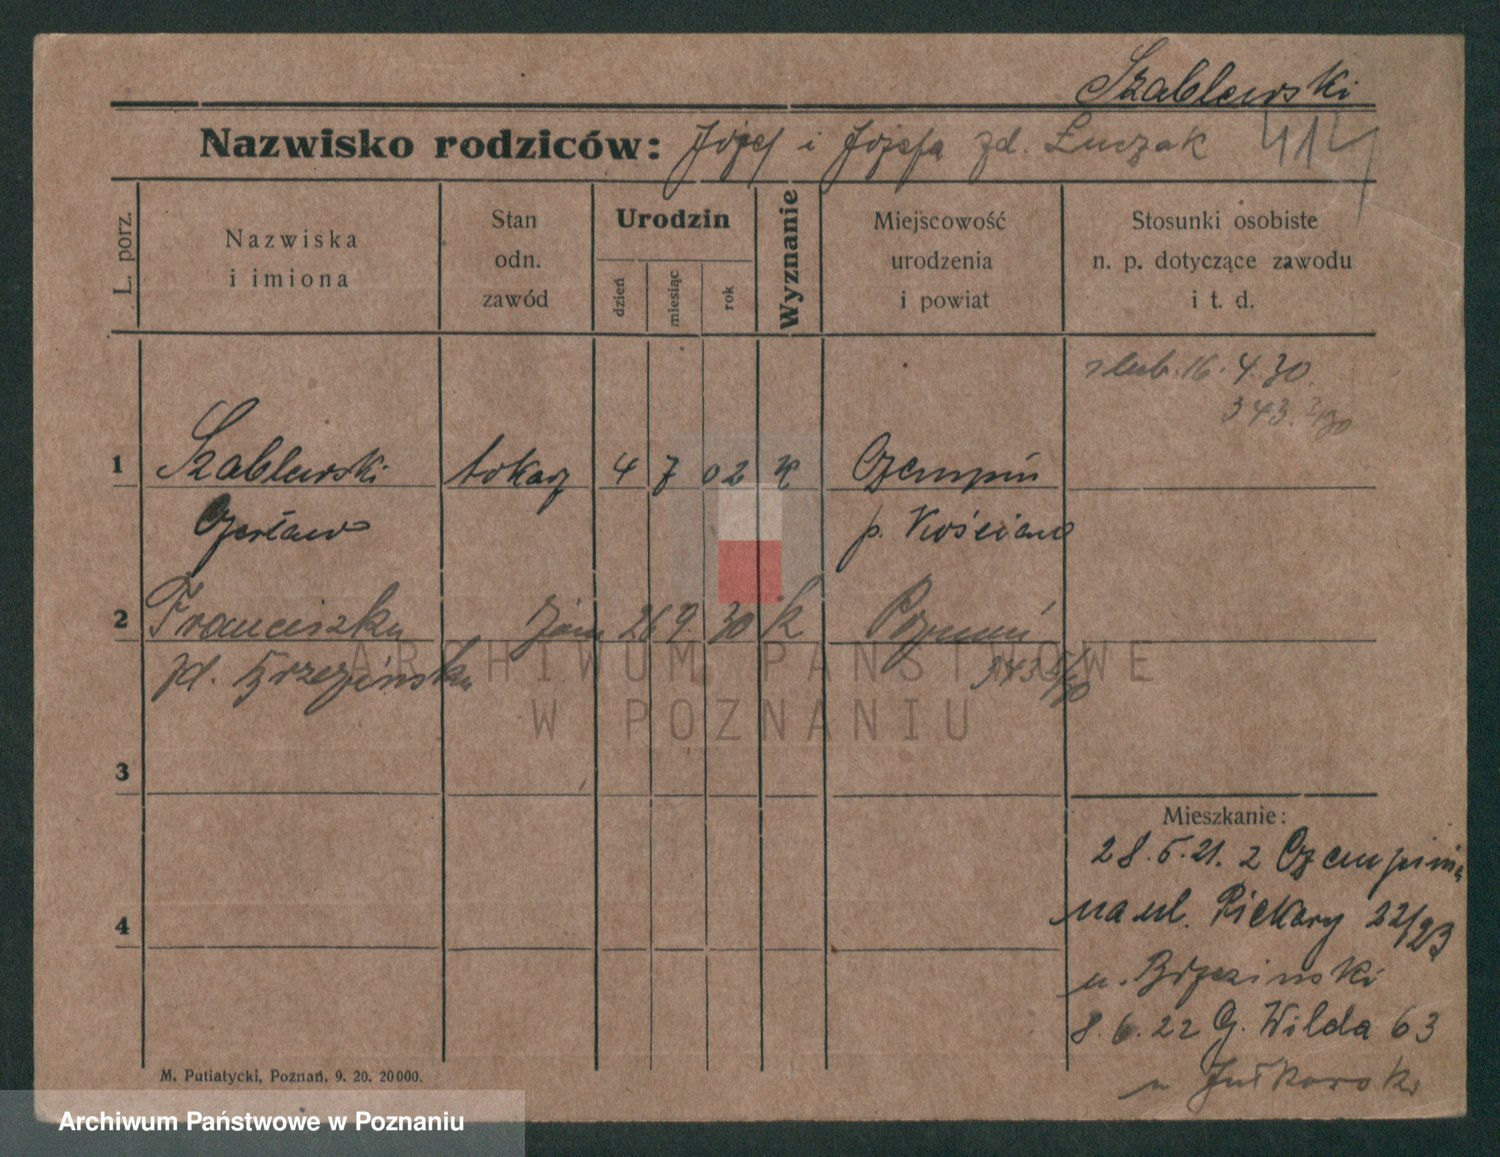 Szablewski
Nazwisko rodziców: Józef i Józefa zd. Łuczak 414
L. porz.
Nazwiska
i imiona
Stan
odn.
zawód
Urodzin
dzień
miesiąc
rok
Wyznanie
Miejscowość
urodzenia
i powiat
Stosunki osobiste
n. p. dotyczące zawodu
i t. d.
ślub. 16. 4. 30.
343.
1 Szablewski tokarz 4 7 02 k Czempiń
Czesław p. Kościan
2 Franciszka 26 9 30 k Poznań
zd. Brzezińska
ARCHIWUM PAŃSTWOWE
W POZNANIU
3
4
Mieszkanie:
28.5.21. z Czempinia
na ul. Piekary 22/23
u. Brzezinski
8.6.22 G. Wilda 63
u
M. Putiatycki, Poznań. 9. 20. 20000.
Archiwum Państwowe w Poznaniu